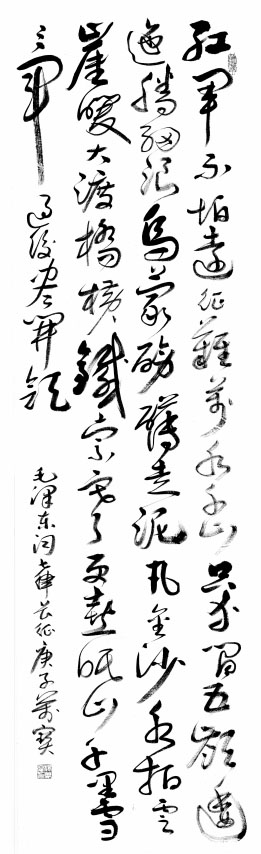 紅軍不怕遠征難萬水千山只等閒五嶺逶
迤騰細浪烏蒙磅礴走泥丸金沙水拍雲
崖暖大渡橋橫鐵索寒更喜岷山千里雪
三軍過後盡開顏
毛澤东词七律长征庚子萬寶